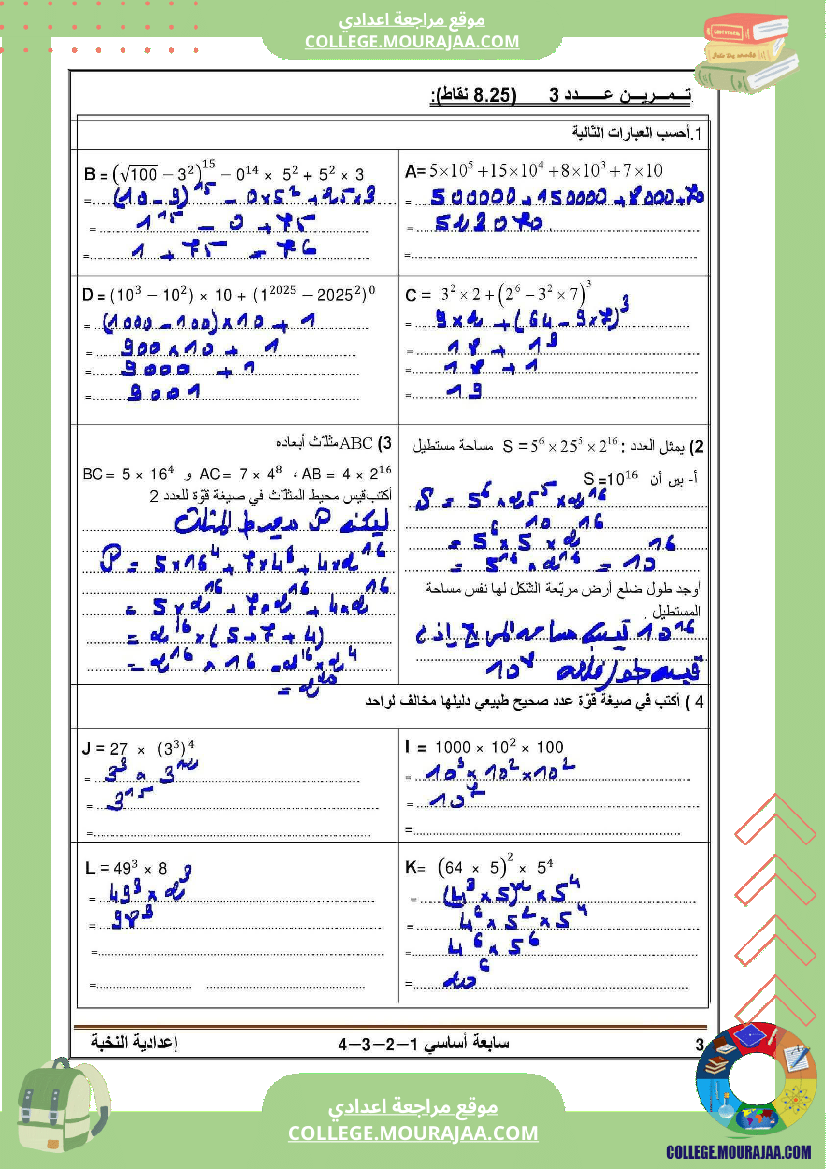 موقع مراجعة اعدادي
COLLEGE.MOURAJAA.COM
تـمـريـن عـــدد 3 (8.25 نقاط):
1.أحسب العبارات التالية
A= 5×10⁵ +15×10⁴ +8×10³ +7×10
= 500000+150000+8000+70
= 512070.
=
B = (√100 − 3²)¹⁵ − 0¹⁴ × 5² + 5² × 3
= (10-9)¹⁵ - 0×5² + 25×3
= 1¹⁵ - 0 + 75
= 1 + 75 = 76
C = 3² × 2 + (2⁶ − 3² × 7)³
= 9×2 + (64 - 9×7)³
= 18 + 1³
= 18 + 1
= 19
D = (10³ − 10²) × 10 + (1²⁰²⁵ − 2025²)⁰
= (1000-100)×10 + 1
= 900×10 + 1
= 9000 + 1
= 9001
2) يمثل العدد : S = 5⁶ × 25⁵ × 2¹⁶ مساحة مستطيل
أ- بين أن S =10¹⁶
S = 5⁶ × 25⁵ × 2¹⁶
= 5⁶ × 5¹⁰ × 2¹⁶
= 5¹⁶ × 2¹⁶ = 10¹⁶
أوجد طول ضلع أرض مربّعة الشكل لها نفس مساحة
المستطيل .
10¹⁶ قيس مساحة المربع إذن
قيس طول ضلعه 10⁸
3) ABC مثلّث أبعاده
AB = 4 × 2¹⁶ ، AC = 7 × 4⁸ و BC = 5 × 16⁴
أكتب قيس محيط المثلّث في صيغة قوّة للعدد 2
ليكن P محيط المثلث
P = 5×16⁴ + 7×4⁸ + 4×2¹⁶
= 5×2¹⁶ + 7×2¹⁶ + 4×2¹⁶
= 2¹⁶ × (5+7+4)
= 2¹⁶ × 16 = 2¹⁶ × 2⁴
= 2²⁰
4 ) أكتب في صيغة قوّة عدد صحيح طبيعي دليلها مخالف لواحد
I = 1000 × 10² × 100
= 10³ × 10² × 10²
= 10⁷
=
J = 27 × (3³)⁴
= 3³ × 3¹²
= 3¹⁵
=
K= (64 × 5)² × 5⁴
= (4³ × 5)² × 5⁴
= 4⁶ × 5² × 5⁴
= 4⁶ × 5⁶
= 20⁶
L = 49³ × 8
= 49³ × 2³
= 98³
=
=
إعدادية النخبة
سابعة أساسي 1–2–3–4
3
موقع مراجعة اعدادي
COLLEGE.MOURAJAA.COM
COLLEGE.MOURAJAA.COM